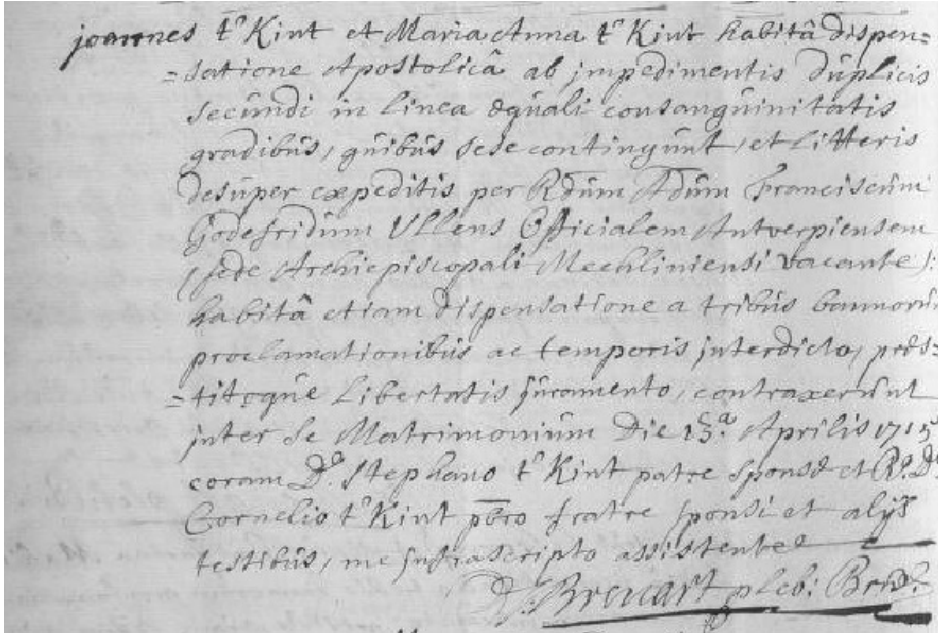 joannes t'Kint et Maria Anna t'Kint habitâ dispen=
=satione Apostolicâ ab impedimentis duplicis
secundi in linea equali consanguinitatis
gradibus, quibus sese contingunt, et litteris
desuper expeditis per Rdum Adum Franciscum
Godefridum Ullens Officialem Antverpiensem
(sede Archiepiscopali Mechliniensi vacante):
habitâ etiam dispensatione a tribus bannorum
proclamationibus ac temporis interdicto, præs=
=titoque libertatis juramento, contraxerunt
inter se Matrimonium Die 13a Aprilis 1715
coram Do Stephano t'Kint patre sponsæ et R. Do
Cornelio t'Kint pbro fratre sponsi et alijs
testibus, me infrascripto assistente
pleb: